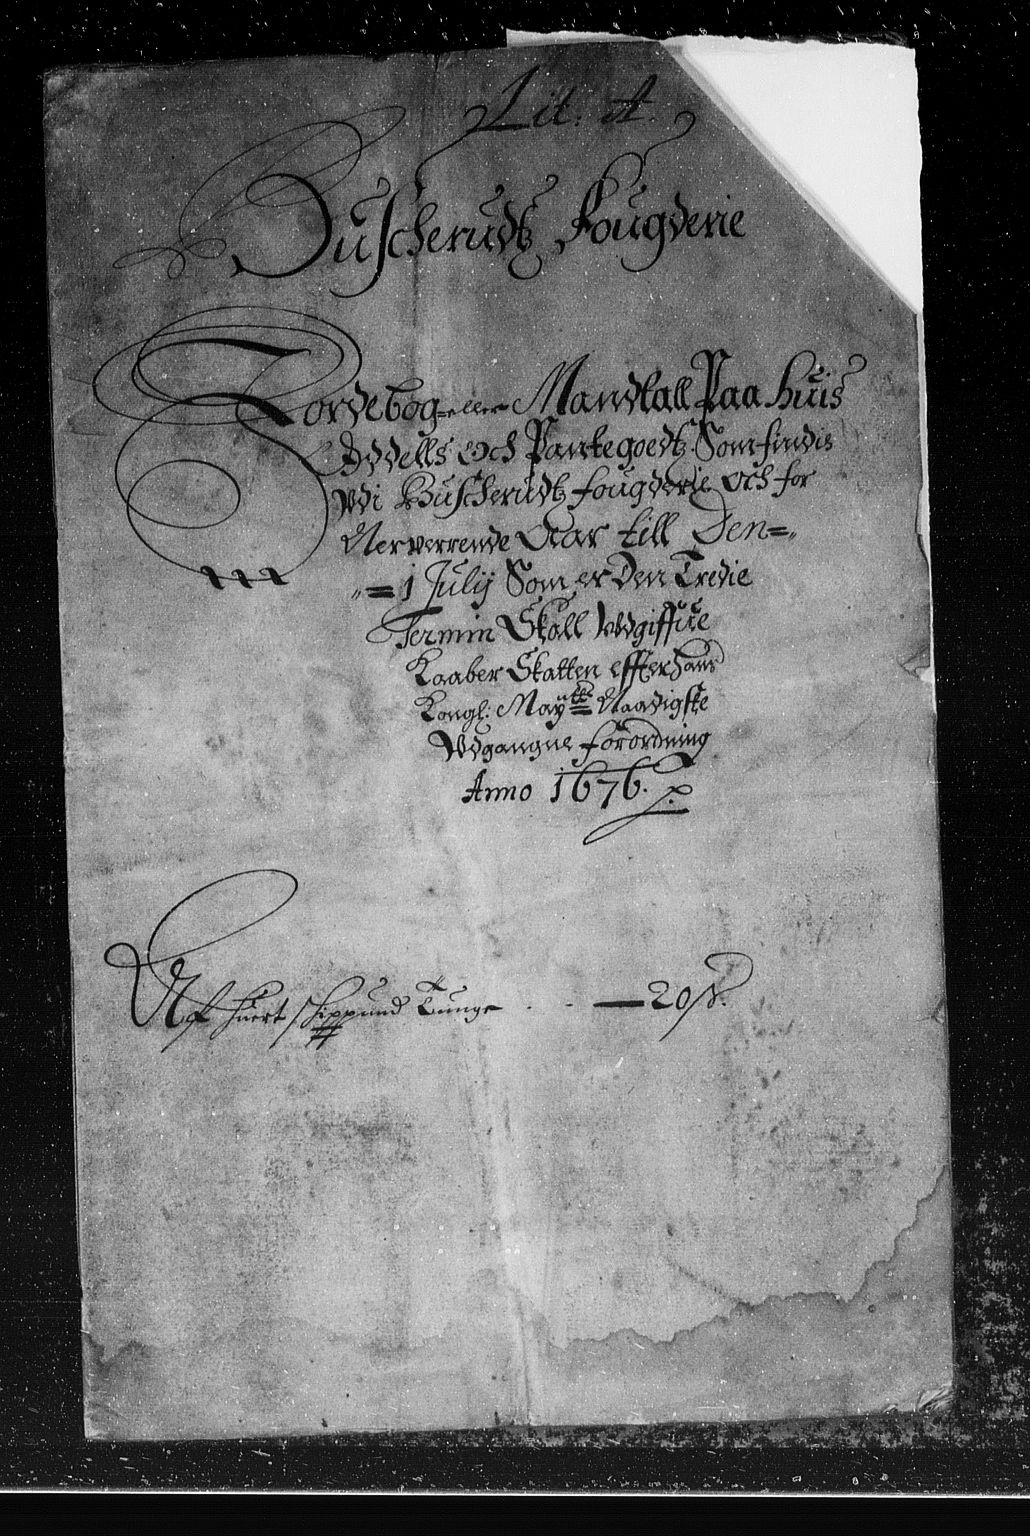 Lit: A.
Buscheruds Fougderie
Jordebog eller Mandtall Paa Huis
Oddells Och Pantegoeds Som findis
Udi Buscheruds fougderie och for
Nerverrende Aar till Den=
=1 Julij Som er Den Tredie
Termin Skall Udgiffue
Kaaber Skatten effter Hans
Kongl: May^tts Naadigste
Udgangne forordning
Anno 1676.
Af huert schippund Tunge - - — 20 s.